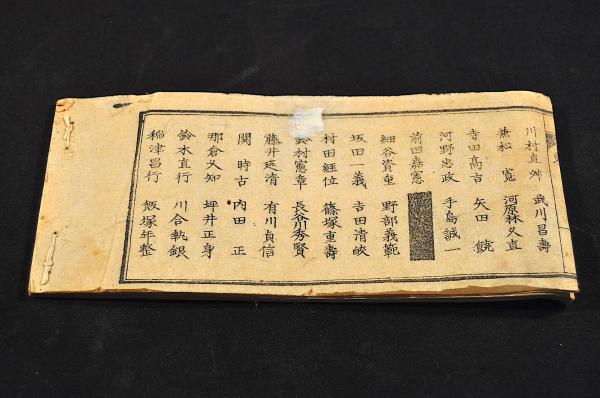 川村直舛 武川昌壽
兼松 寛 河原林久直
寺田高吉 矢田 鐃
河野忠政 手島誠一
前田嘉憲
細谷資重 野部義範
坂田一義 吉田清
村田經位 篠塚重壽
村憲章 長谷川秀賢
藤井延清 有川貞信
関 時古 内田 正
那倉久知 坪井正身
鈴木直行 川合執銀
稲津昌行 飯塚年整